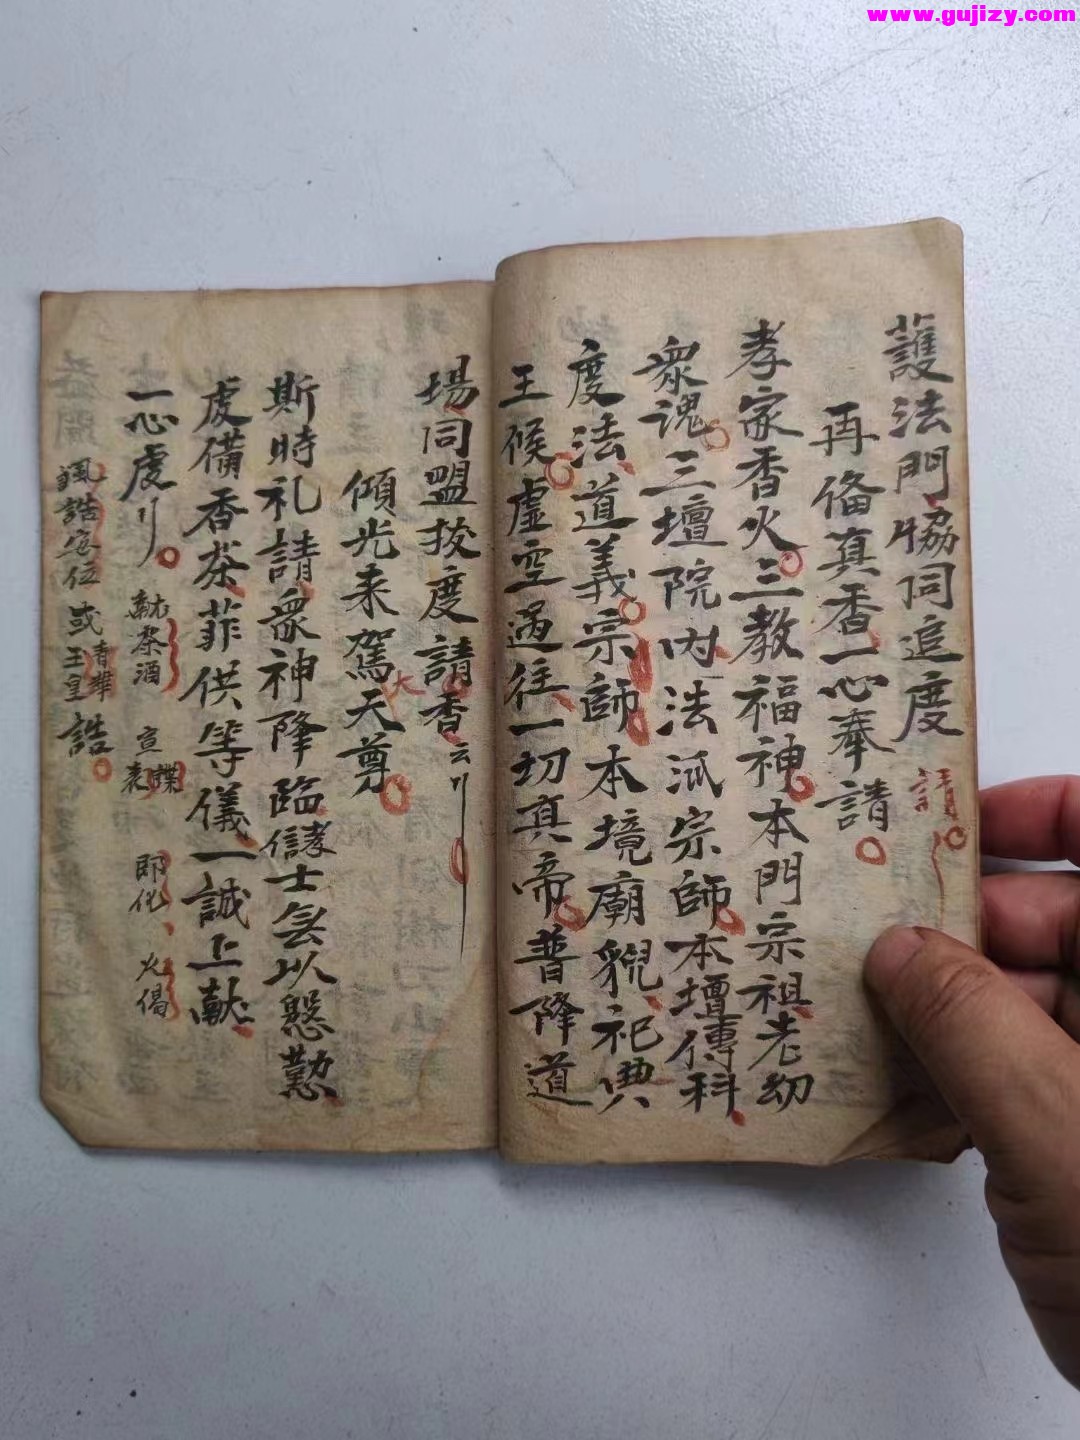 www.gujizy.com
護法門恊同追度 請
再俻真香一心奉請
孝家香火三教福神本門宗祖老幼
衆魂三壇院内法派宗師本壇傳科
度法道義宗師本境廟貌祀典
王候虚空過往一切真帝普降道
場同盟拔度請香云
傾光来駕大天尊
斯時礼請衆神降臨儲士 以慇懃
虔備香茶菲供等儀一誠上献
一心虔 献茶酒 宣牒表 即化、火偈
諷誥安位或香輦玉皇誥